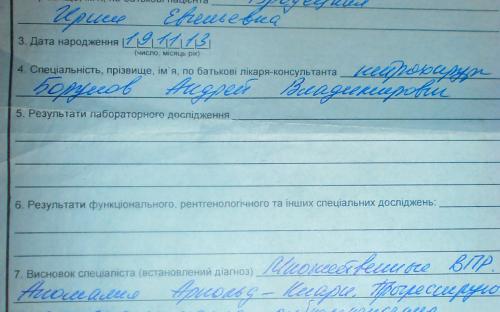 по батькові пацієнта
Ирин Евгеньевна
3. Дата народження 1 9 1 1 1 3
(число, місяць рік)
4. Спеціальність, прізвище, ім`я, по батькові лікаря-консультанта нейрохирург
Андрей Владимирович
5. Результати лабораторного дослідження
6. Результати функціонального, рентгенологічного та інших спеціальних досліджень:
7. Висновок спеціаліста (встановлений діагноз) Множественные ВПР.
Аномалия Арнольд-Киари. Прогрессирую